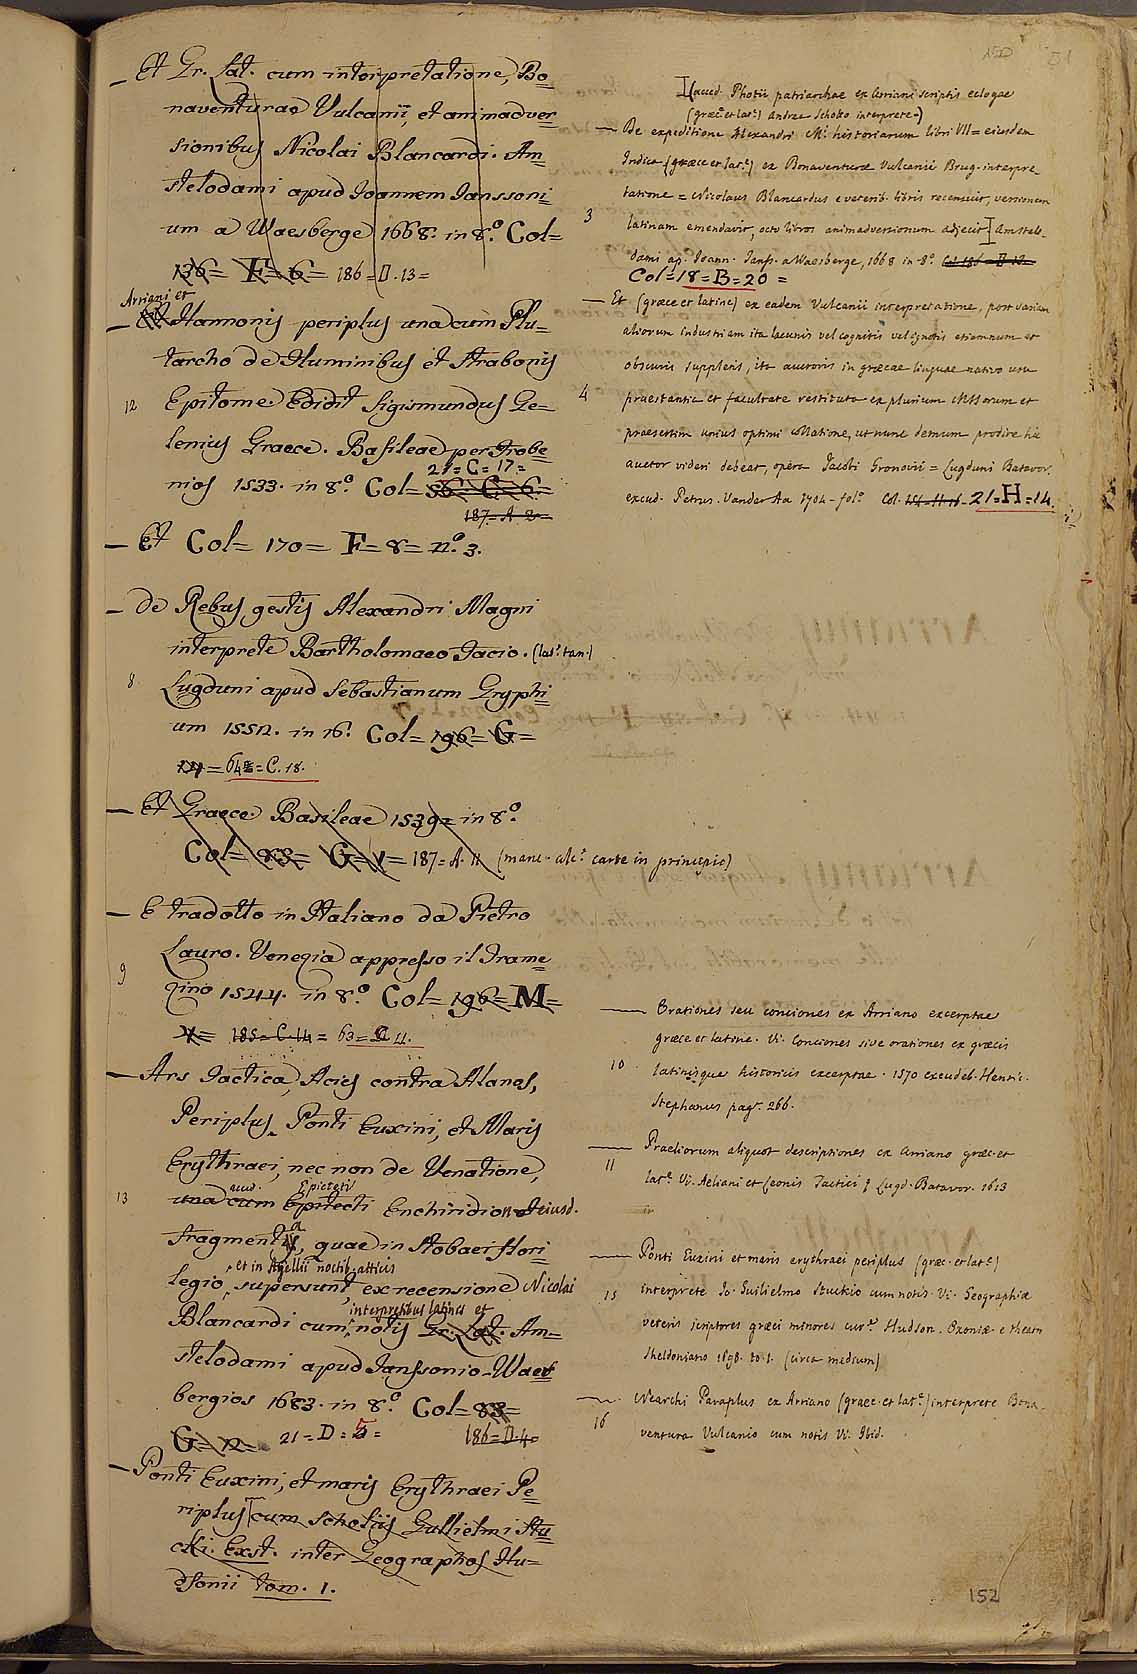 _ Et Gr. Lat. cum interpretatione Bo=
naventurae Vulcanii, et animadver=
sionibus Nicolai Blancardi. Am=
stelodami apud Joannem Janssoni=
um a Waesberge 1668. in 8.º Col=
136= F=6= 186=D.13=
Arriani et
_ Hannonis periplus una cum Plu=
tarcho de Fluminibus et Strabonis
12 Epitome Edidit Sigismundus Ge=
lenius Graece. Basileae per Frobe=
21=C=17=
nios 1533. in 8.º Col=56=C=6.=
187=A 2=
_ Et Col=170= F=8= n.º 3.
_ de Rebus gestis Alexandri Magni
interprete Bartholomaeo Facio. (lat.º tan.)
8 Lugduni apud Sebastianum Gryphi=
um 1552. in 16.º Col=196= G=
= 64=C.18.
_ Et Graece Basileae 1539= in 8.º
Col= 83= G=1= 187=A.11 (manc. alc.e carte in principio)
_ E tradotto in Italiano da Pietro
9 Lauro. Venezia appresso il Trame=
zino 1544. in 8.º Col=196=M=
4= 185=C.14= 63= 11.
_ Ars Tactica, Acies contra Alanos,
Periplus Ponti Euxini, et Maris
Erythraei, nec non de Venatione,
acced. Epicteti
13 una cum Epitecti Enchiridion eiusd.
fragmenta, quae in Stobaei flori=
et in Agellii noctib. atticis
legio supersunt, ex recensione Nicolai
interpretibus latines et
Blancardi cum notis Gr. Lat. Am=
stelodami apud Janssonio-Waes=
bergios 1683. in 8.º Col=83=
G= n= 21=D=5= 186=D.4=
_ Ponti Euxini, et maris Erythraei Pe=
riplus [cum scholiis Gullielmi Stu=
cki. Exst. inter Geographos Hu=
dsonii tom. 1.
150 51
[(acced. Photii patriarchae ex Arriani scriptis eclogae
(graec.e et lat.e) Andrea Schoto interprete=)
_ De expeditione Alexandri M. historiarum libri VII= eiusdem
Indica (graece et lat.e) ex Bonaventurae Vulcanii Brug. interpre_
tatione = Nicolaus Blancardus e veterib. libris recensuit, versionem
3 latinam emendavit, octo libros animadversionum adjecit] Amstelo_
dami ap. Joann. Janss. a Waesberge, 1668 in 8.º Col=186=D.13=
Col=18=B=20=
_ Et (graece et latine) ex eadem Vulcanii interpretatione, post variam
aliorum industriam ita lacunis vel cognitis vel ignotis etiamnum et
obscuris suppletis, ita auctoris in graecae linguae nativo usu
4 praestantia et facultate restituta ex plurium MSSorum et
praesertim unius optimi collatione, ut nunc demum prodire hic
auctor videri debeat, opera Jacobi Gronovii = Lugduni Batavor.
excud. Petrus Vander Aa 1704 - fol.º Col. 21=H=14.
_ Orationes seu conciones ex Arriano excerptae
graece et latine. Vi. Conciones sive orationes ex graecis
10 latinisque historicis excerptae. 1570 excudeb. Henric.
Stephanus pag. 266.
_ Praeliorum aliquot descriptiones ex Arriano graec. et
11 lat.e Vi. Aeliani et Leonis Tactici Lugd. Batavor. 1613
_ Ponti Euxini et maris erythraei periplus (graec. et lat.e)
15 interprete Jo. Guilielmo Stuckio cum notis. Vi. Geographiae
veteris scriptores graeci minores cur.e Hudson. Oxoniae e theatro
Sheldoniano 1698. to. 1. (circa medium)
_ Nearchi Paraplus ex Arriano (graec. et lat.e) interprete Bona_
16 ventura Vulcanio cum notis Vi. Ibid.
152